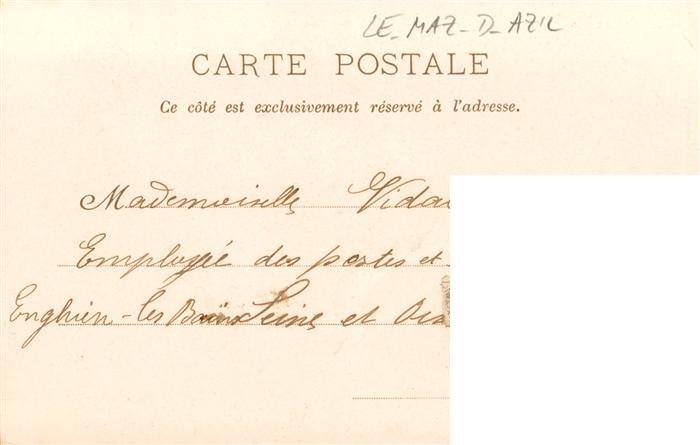 LE_MAZ_D_AZIL
CARTE POSTALE
Ce côté est exclusivement réservé à l'adresse.
Mademoiselle
Employée des postes et
Enghien-les Bains Seine et